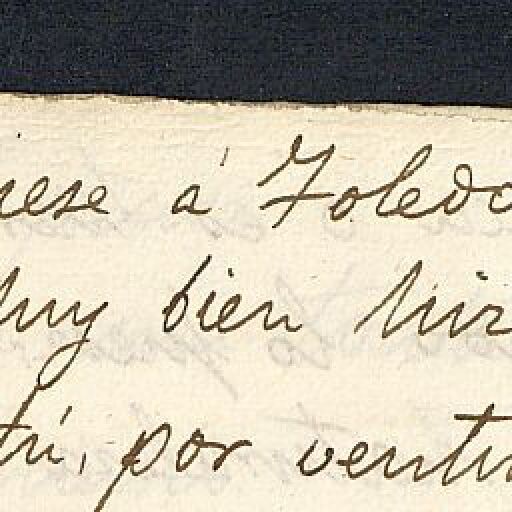 nese á Toledo
Muy bien Mir
tú, por ventu